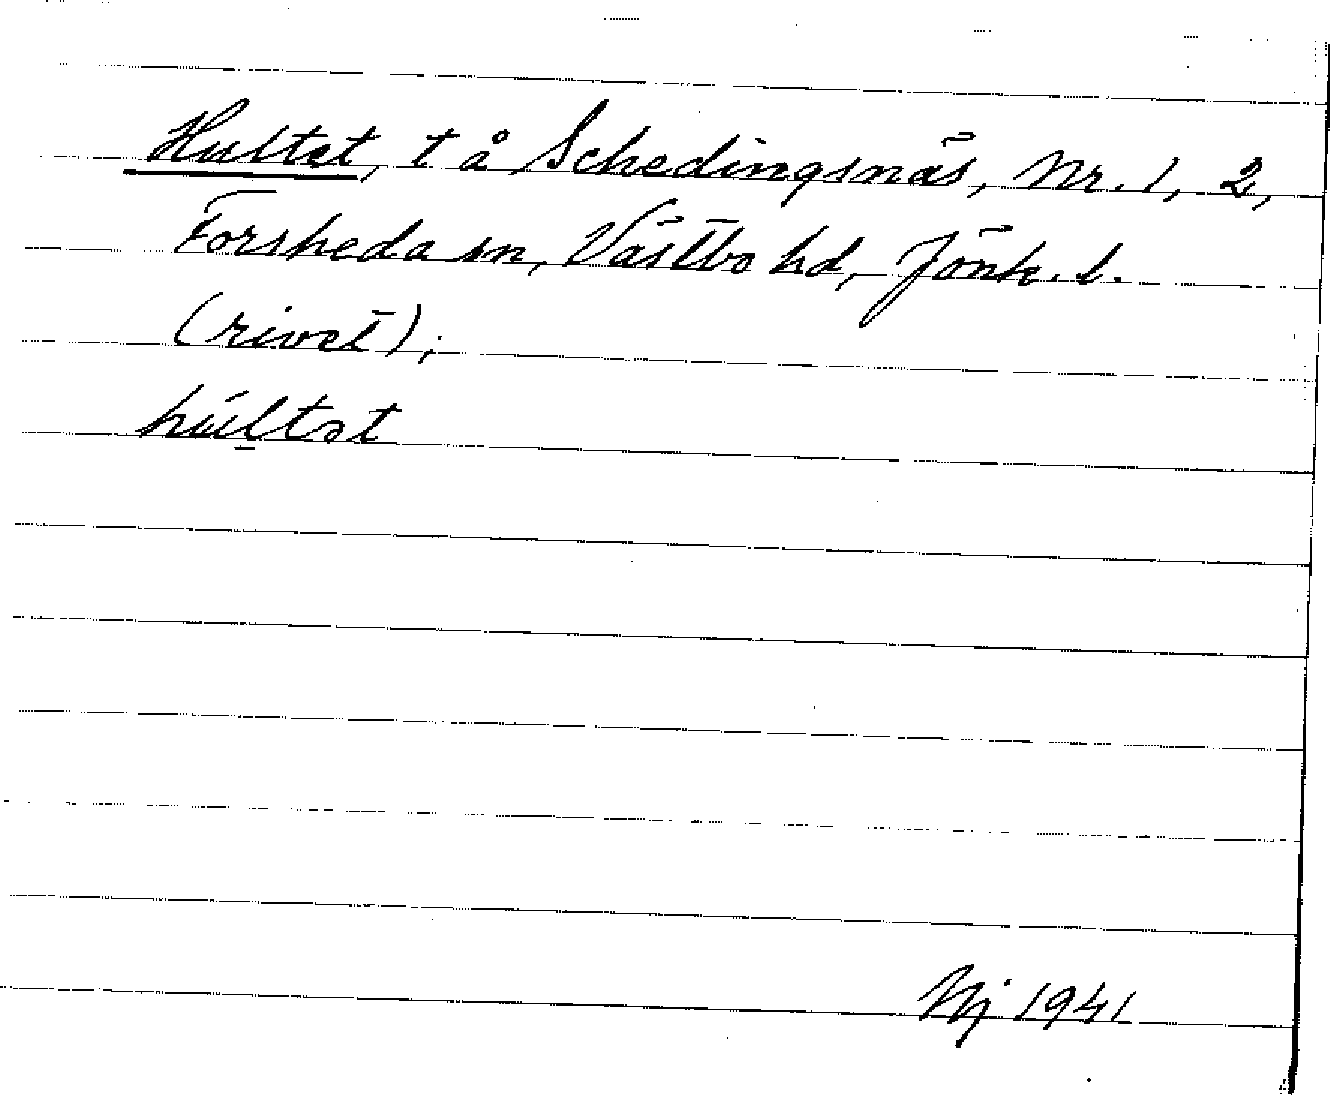 Hultet, t å Schedingsnäs, Nr. 1, 2,
Forsheda sn, Västbo hd, Jönk. l.
(rivet);
húl̠tət
Nj 1941